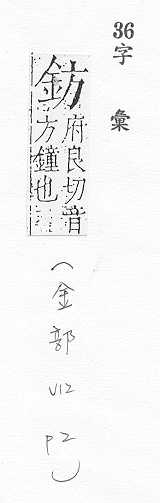 36字彙
鈁府良切音
方鐘也
（金部 V12 P2）